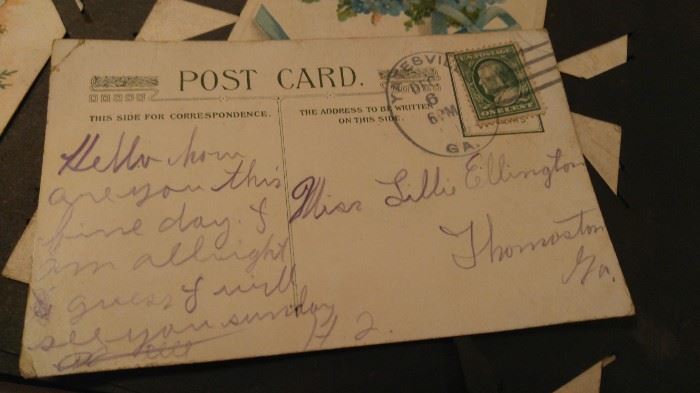 POST CARD.
THIS SIDE FOR CORRESPONDENCE.
THE ADDRESS TO BE WRITTEN
ON THIS SIDE.
YATESVILLE
DEC
6
6PM
GA.
ONE CENT
Hello how
are you this
fine day. I
am allright
I guess I will
see you sunday
Miss Lillie Ellington
Thomaston
Ga.